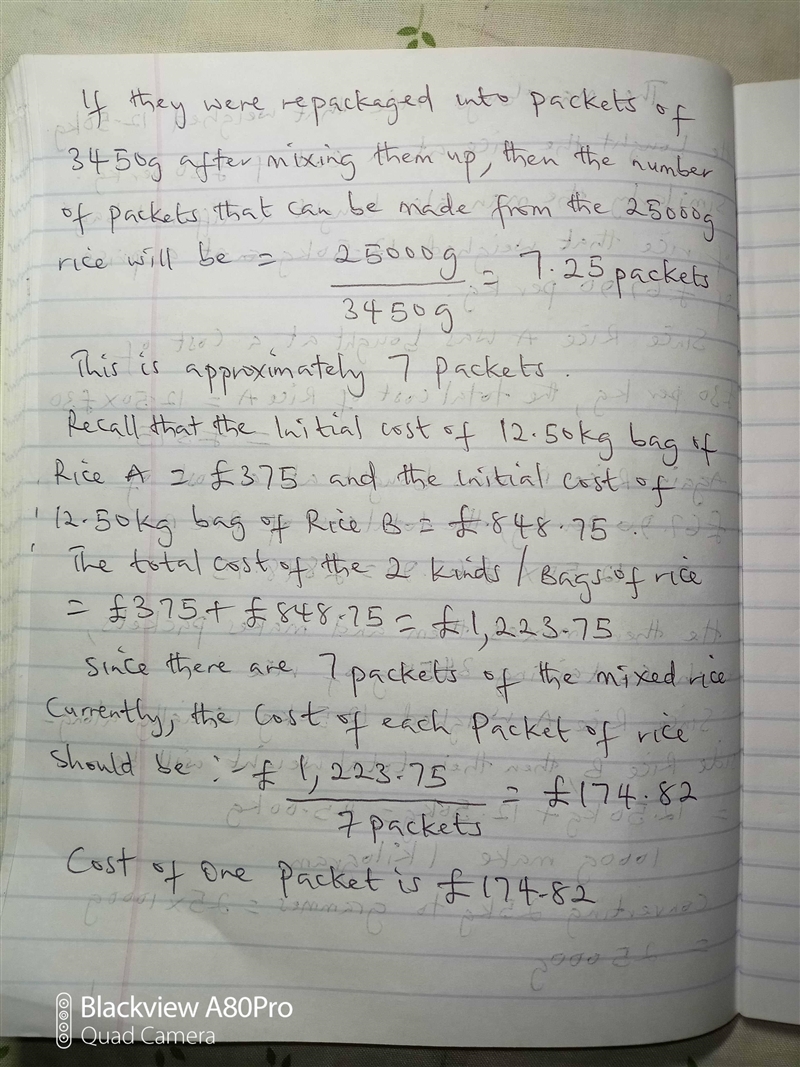 If they were repackaged into packets of
3450g after mixing them up, then the number
of packets that can be made from the 25000g
rice will be = 25000g / 3450g = 7.25 packets
This is approximately 7 packets.
Recall that the Initial cost of 12.50kg bag of
Rice A = £375 and the initial cost of
12.50kg bag of Rice B = £848.75.
The total cost of the 2 kinds / Bags of rice
= £375 + £848.75 = £1,223.75
Since there are 7 packets of the mixed rice
Currently, the cost of each Packet of rice
should be :- £1,223.75 / 7 packets = £174.82
Cost of One Packet is £174.82
Blackview A80Pro
Quad Camera